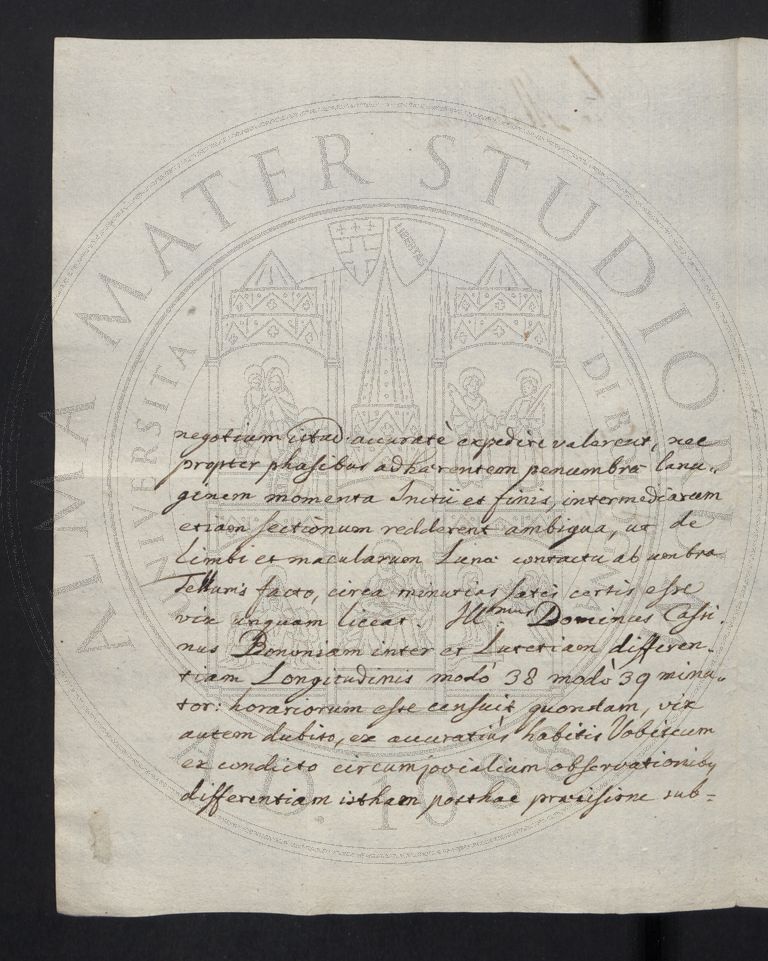 negotium istud accuratè expedire valerent, nec
propter phasibus adhærentem penumbræ lanu-
ginem momenta Initii et finis, intermediarum
etiam sectionum redderent ambigua, ut de
Limbi et macularum Lunæ contactu ab umbra
Telluris facto, circa minutias satis certis esse
vix unquam liceat. Ill.mus Dominus Cassi-
nus Bononiam inter et Lutetiam differen-
tiam Longitudinis modò 38 modò 39 minu-
tor: horariorum esse censuit quondam, vix
autem dubito, ex accuratiùs habitis Vobiscum
ex condicto circumjovialium observationibus
differentiam istham posthac præcisione sub=
ALMA MATER STUDIORUM
UNIVERSITÀ DI BOLOGNA
LIBERTAS
A.D. 1088